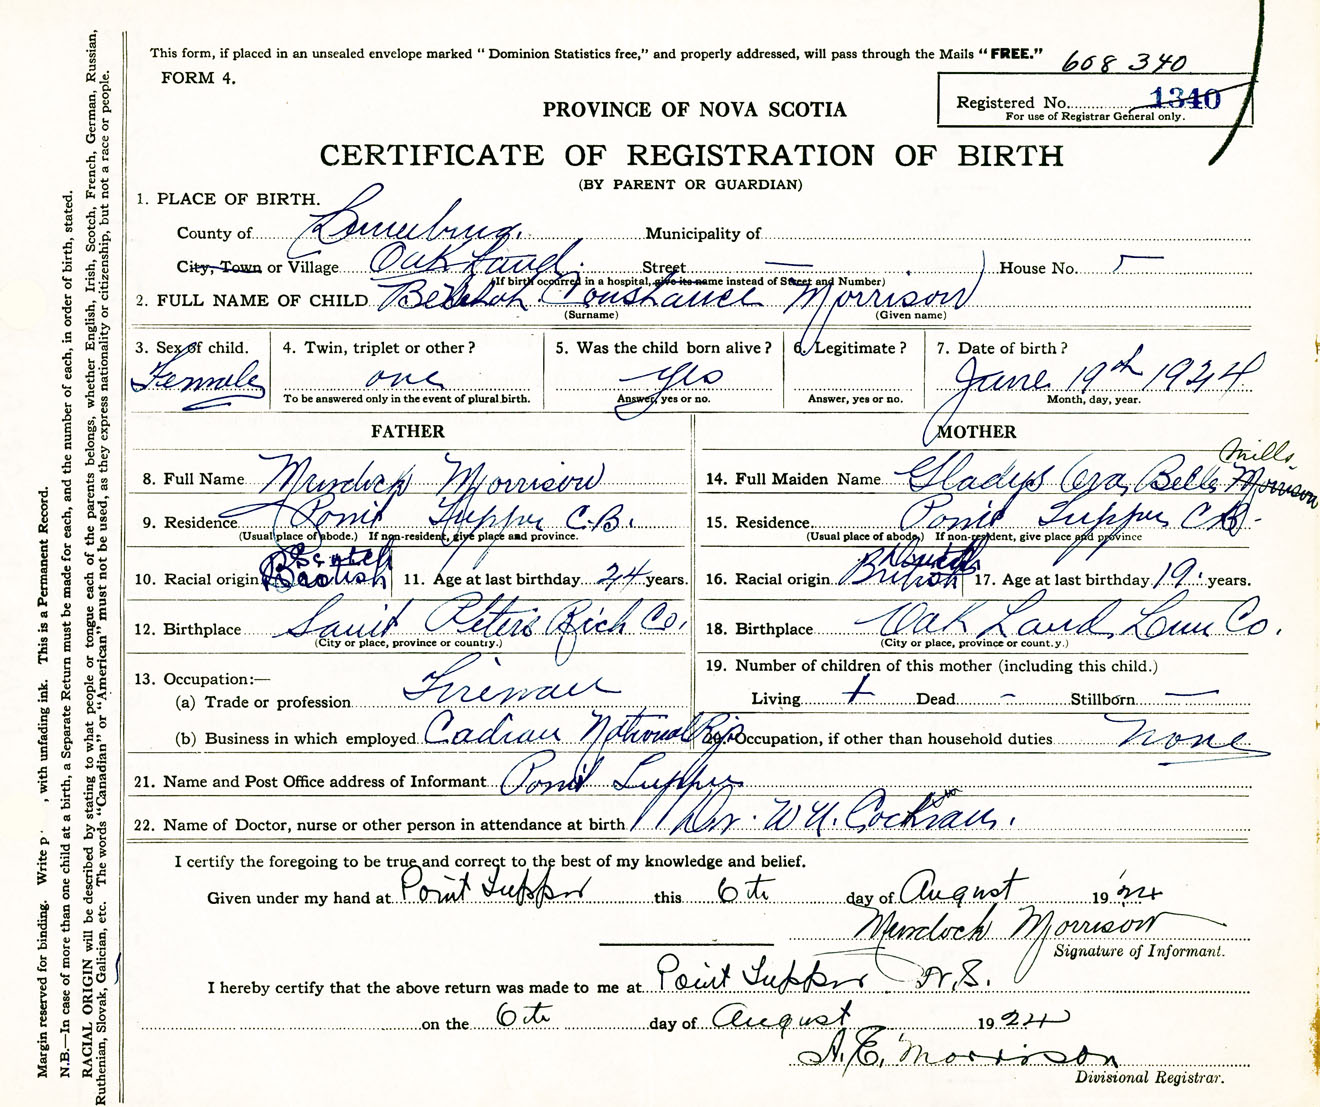 This form, if placed in an unsealed envelope marked " Dominion Statistics free," and properly addressed, will pass through the Mails "FREE."
608 340
FORM 4.
Registered No. 1340
For use of Registrar General only.
PROVINCE OF NOVA SCOTIA
CERTIFICATE OF REGISTRATION OF BIRTH
(BY PARENT OR GUARDIAN)
1. PLACE OF BIRTH.
County of Lunenburg. Municipality of
City, Town or Village Oak Land. Street — House No.
(If birth occurred in a hospital, give its name instead of Street and Number)
2. FULL NAME OF CHILD Constance Morrison
(Surname) (Given name)
3. Sex of child. 4. Twin, triplet or other? 5. Was the child born alive? 6. Legitimate? 7. Date of birth?
Female one yes June 19th 1924
To be answered only in the event of plural birth. Answer, yes or no. Answer, yes or no. Month, day, year.
FATHER MOTHER
Mills
8. Full Name Murdock Morrison 14. Full Maiden Name Gladys Ora Bell Morrison
9. Residence Point Tupper C.B. 15. Residence Point Tupper C.B.
(Usual place of abode.) If non-resident, give place and province. (Usual place of abode.) If non-resident, give place and province
Scotch
10. Racial origin 11. Age at last birthday 24 years. 16. Racial origin British 17. Age at last birthday 19. years.
12. Birthplace Saint Peters Rich Co. 18. Birthplace Oak Land Lun Co.
(City or place, province or country.) (City or place, province or count.y.)
13. Occupation:— 19. Number of children of this mother (including this child.)
(a) Trade or profession Fireman Living Dead - Stillborn —
(b) Business in which employed Cadian National Ry 20. Occupation, if other than household duties none
21. Name and Post Office address of Informant Point Tupper
22. Name of Doctor, nurse or other person in attendance at birth Dr. W N. Cochran.
I certify the foregoing to be true and correct to the best of my knowledge and belief.
Given under my hand at Point Tupper this 6th day of August 1924
Murdock Morrison
Signature of Informant.
I hereby certify that the above return was made to me at Point Tupper N.S.
on the 6th day of August 1924
A. E. Morrison
Divisional Registrar.
Margin reserved for binding. Write p , with unfading ink. This is a Permanent Record.
N.B.—In case of more than one child at a birth, a Separate Return must be made for each, and the number of each, in order of birth, stated.
RACIAL ORIGIN will be described by stating to what people or tongue each of the parents belongs, whether English, Irish, Scotch, French, German, Russian,
Ruthenian, Slovak, Galician, etc. The words "Canadian" or "American" must not be used, as they express nationality or citizenship, but not a race or people.